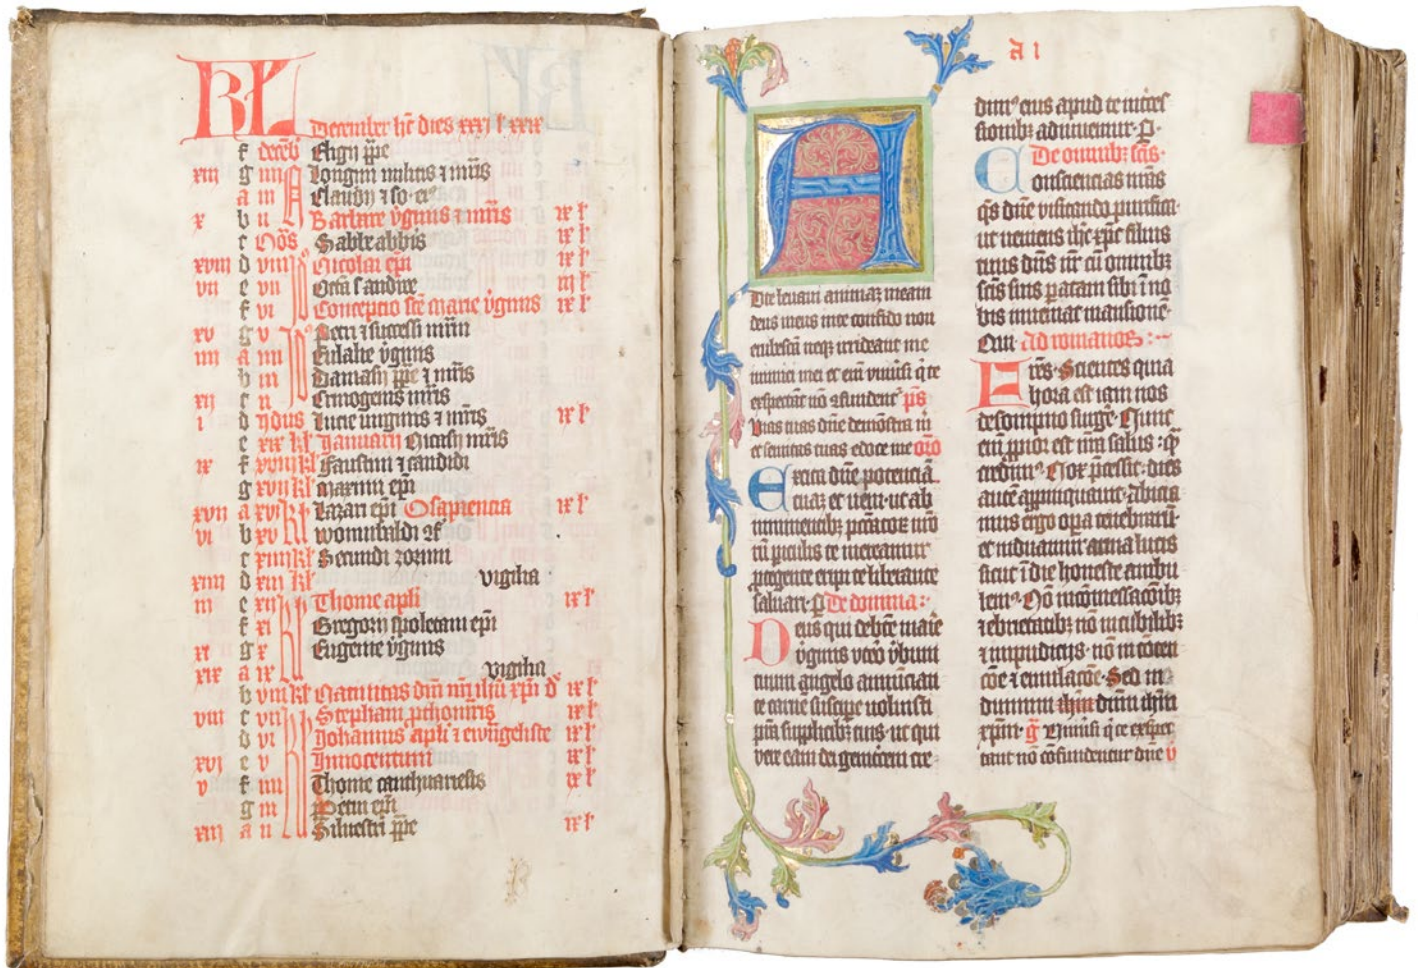 KL
December ht dies xxxj l xxix
f deceb Eligij ppe
xiii g iiii Longini militis ⁊ mris
a iii Claudij ⁊ so er⁹
x b ii Barbare vginis ⁊ mris ix l
c Nōs Sabbe abbis ix l
xviii d viii Nicolai epi ix l
vii e vii Octa s andree iij l
f vi Conceptio sce marie vginis ix l
xv g v Petri ⁊ successi mrm
iiii a iiii Eulalie vginis
b iii Damasij ppe ⁊ mris
xii c ii Ermogenis mris
i d ydus Lucie virginis ⁊ mris ix l
e xix kl Januarij Nicasij mris
ix f xviii kl Faustini ⁊ candidi
g xvii kl Maximi epi
xvii a xvi Lazari epi Osapiencia ix l
vi b xv wonnibaldi ⁊f
c xiiii kl Secundi zozimi
xiiii d xiii kl vigilia
iii e xii Thome apli ix l
f xi Gregorij spoletani epi
xi g x Eugenie vginis
xix a ix vigilia
b viii kl Natiuitas dni nri ihu xpi d ix l
viii c vii Stephani pthomris ix l
d vi Johannis apli ⁊ ewngeliste ix l
xvi e v Innocentum ix l
v f iiii Thome canthuariensis ix l
g iii epi
xiii a ii Siluestri ppe ix l
a 1
A
Dte leuaui animaz meam
deus meus in te confido non
erubescā neqz irrideant me
inimici mei et eni vniusi q te
expectāt nō ꝯfundent ps
Vias tuas dne demōstra m
et semitas tuas edoce me oro
Excita dne potenciā
tuaz et ueni ut ab
imminentibz pctāτοz nrō
rū piculis te mereamur
ptegente eripi te liberante
saluari p De domina
Deus qui de bte marie
vginis vtero vbum
tuum angelo annuncian
te carnē suscipe uoluisti
pta supplicibz tuis ut qui
vere eam dei genitricem cre
dim⁹ eius apud te interces
sionibz adiuuemur p
De omnibz scis
Consciencias nras
qs dne visitando purifica
ut ueniens ihc xpc filius
tuus dns nr cū omnibz
scis suis paratam sibi ī no
bis inueniat mansione
Qui Ad romanos
Frēs Scientes quia
hora est iam nos
de sompno surge Nunc
eni ppior est nra salus qz
credim⁹ Nox pcessit dies
autē appinquauit Abicia
mus ergo opa tenebrarū
et induamur arma lucis
sicut ī die honeste ambu
lem⁹ Nō in cōmessacōibz
⁊ ebrietatibz nō in cubilibz
⁊ impudicijs nō in cōten
cōe ⁊ emulacōe Sed in
duimini ihm dnm ihm
xpm g Vniusi q te expec
tant nō cōfundentur dne v